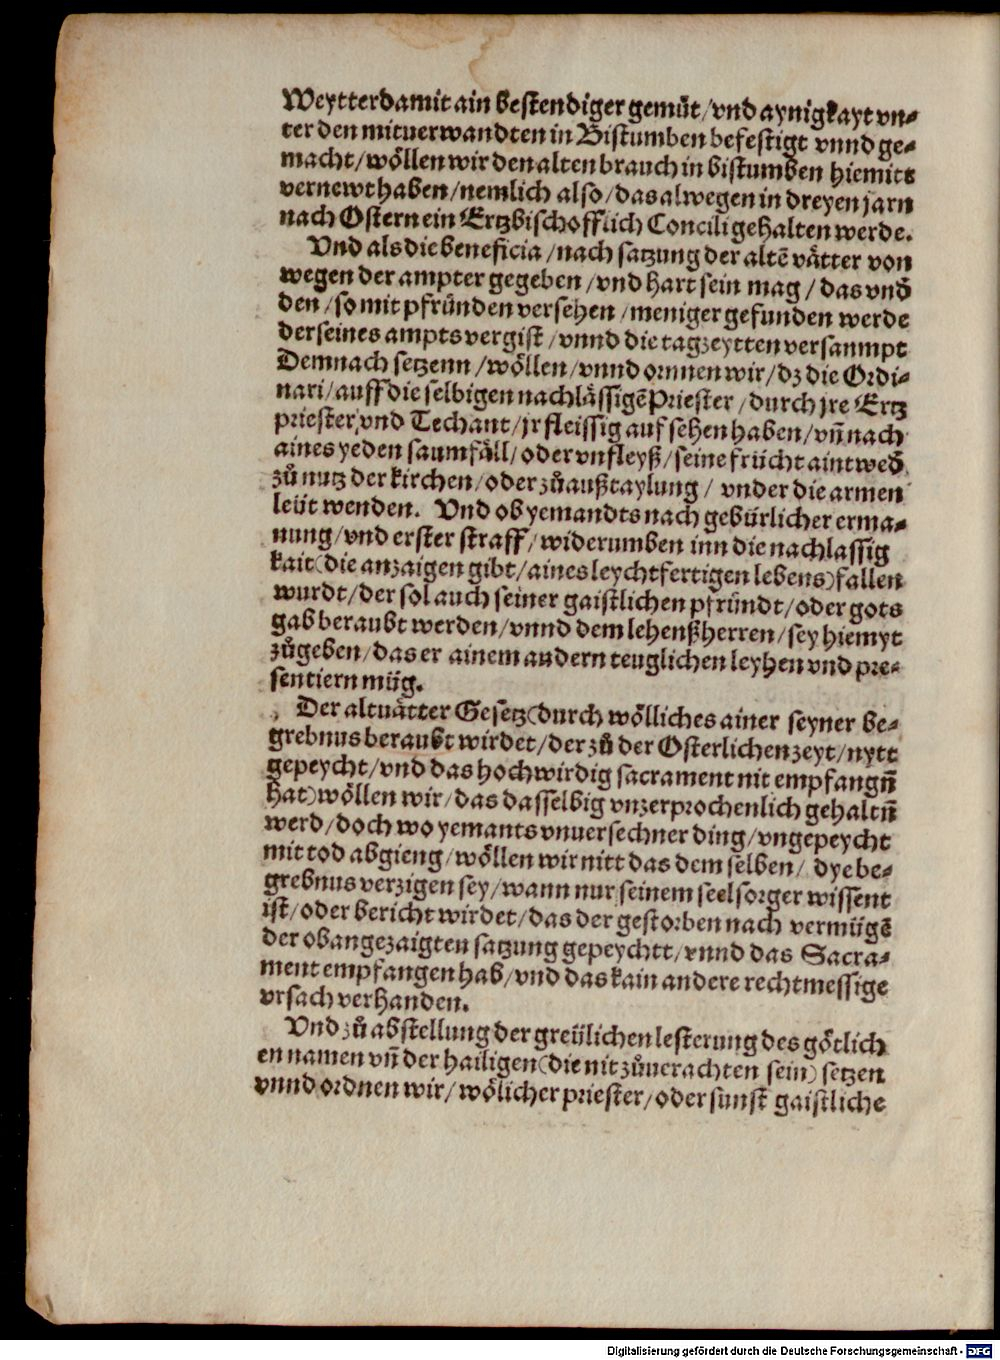 Weytter damit ain bestendiger gemüt/vnd aynigkayt vn-
ter den mituerwandten in Bistumben befestigt vnnd ge-
macht/wöllen wir den alten brauch in bistumben hiemitt
vernewt haben/nemlich also/das alwegen in dreyen jarn
nach Ostern ein Ertzbischofflich Concili gehalten werde.
Vnd als die beneficia/nach satzung der altē vätter von
wegen der ampter gegeben/vnd hart sein mag/das vnď
den/so mit pfründen versehen/meniger gefunden werde
der seines ampts vergist/vnnd die tagzeytten versaumpt
Demnach setzenn/wöllen/vnnd ornnen wir/dz die Ordi-
nari/auff die selbigen nachlässigē Priester/durch jre Ertz
priester/vnd Techant/jr fleissig auf sehen haben/vn̄ nach
aines yeden saumfäll/oder vnfleyß/seine frücht aintweď
zů nutz der kirchen/oder zů außtaylung/vnder die armen
leüt wenden. Vnd ob yemandts nach gebürlicher erma-
nung/vnd erster straff/widerumben inn die nachlassig
kait(die anzaigen gibt/aines leychtfertigen lebens)fallen
wurdt/der sol auch seiner gaistlichen pfründt/oder gots
gab beraubt werden/vnnd dem lehenßherren/sey hiemyt
zůgeben/das er ainem andern teuglichen leyhen vnd pre-
sentiern müg.
Der altuätter Gesetz(durch wölliches ainer seyner be-
grebnus beraubt wirdet/der zů der Osterlichen zeyt/nytt
gepeycht/vnd das hochwirdig sacrament nit empfangn̄
hat)wöllen wir/das dasselbig vnzerprochenlich gehaltn̄
werd/doch wo yemants vnuersechner ding/vngepeycht
mit tod abgieng/wöllen wir nitt das dem selben/dye be-
grebnus verzigen sey/wann nur seinem seelsorger wissent
ist/oder bericht wirdet/das der gestorben nach vermügē
der obangezaigten satzung gepeychtt/vnnd das Sacra-
ment empfangen hab/vnd das kain andere rechtmessige
vrsach verhanden.
Vnd zů abstellung der greülichen lesterung des götlich
en namen vn̄ der hailigen(die nit zůuerachten sein)setzen
vnnd ordnen wir/wölicher priester/oder sunst gaistliche
Digitalisierung gefördert durch die Deutsche Forschungsgemeinschaft - DFG